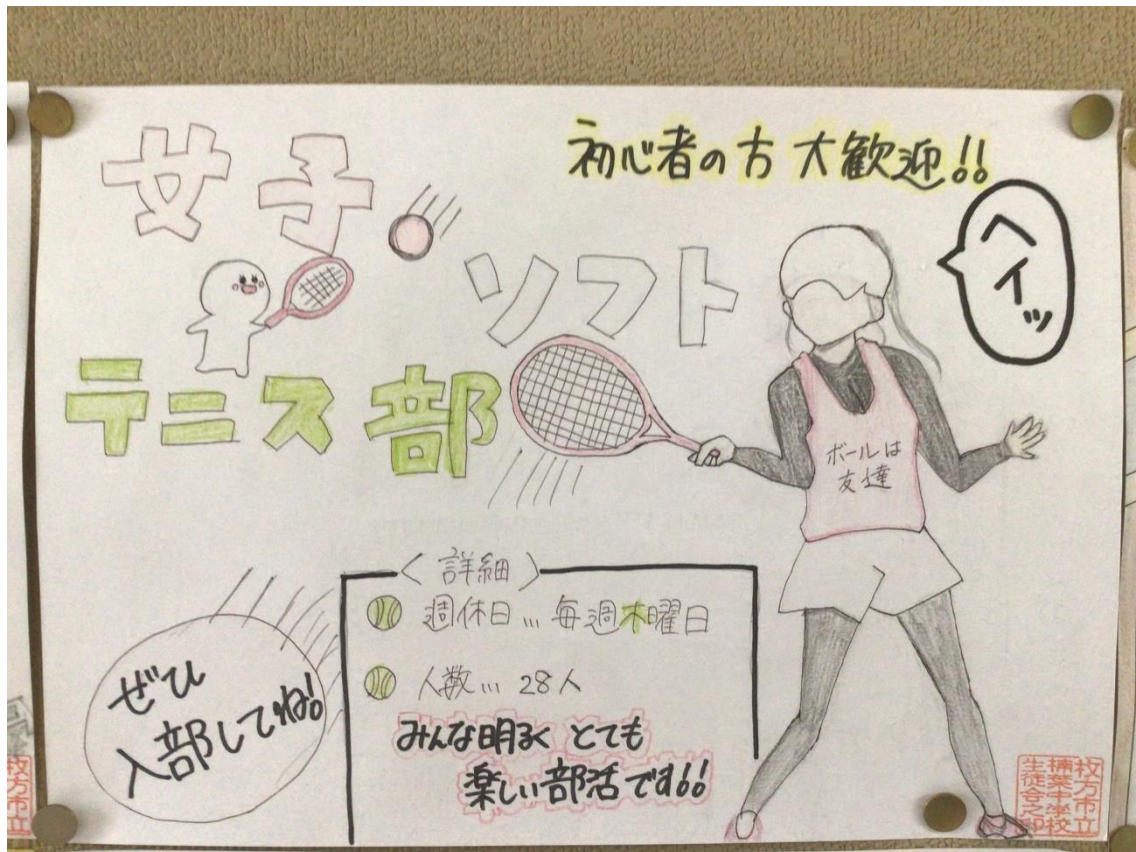 女子
ソフト
テニス部
初心者の方 大歓迎!!
ヘイッ
ボールは
友達
〈詳細〉
週休日…毎週木曜日
人数…28人
みんな明るく とても
楽しい部活です!!
ぜひ
入部してね!
枚方市立
楠葉中学校
生徒会之印
枚方市立